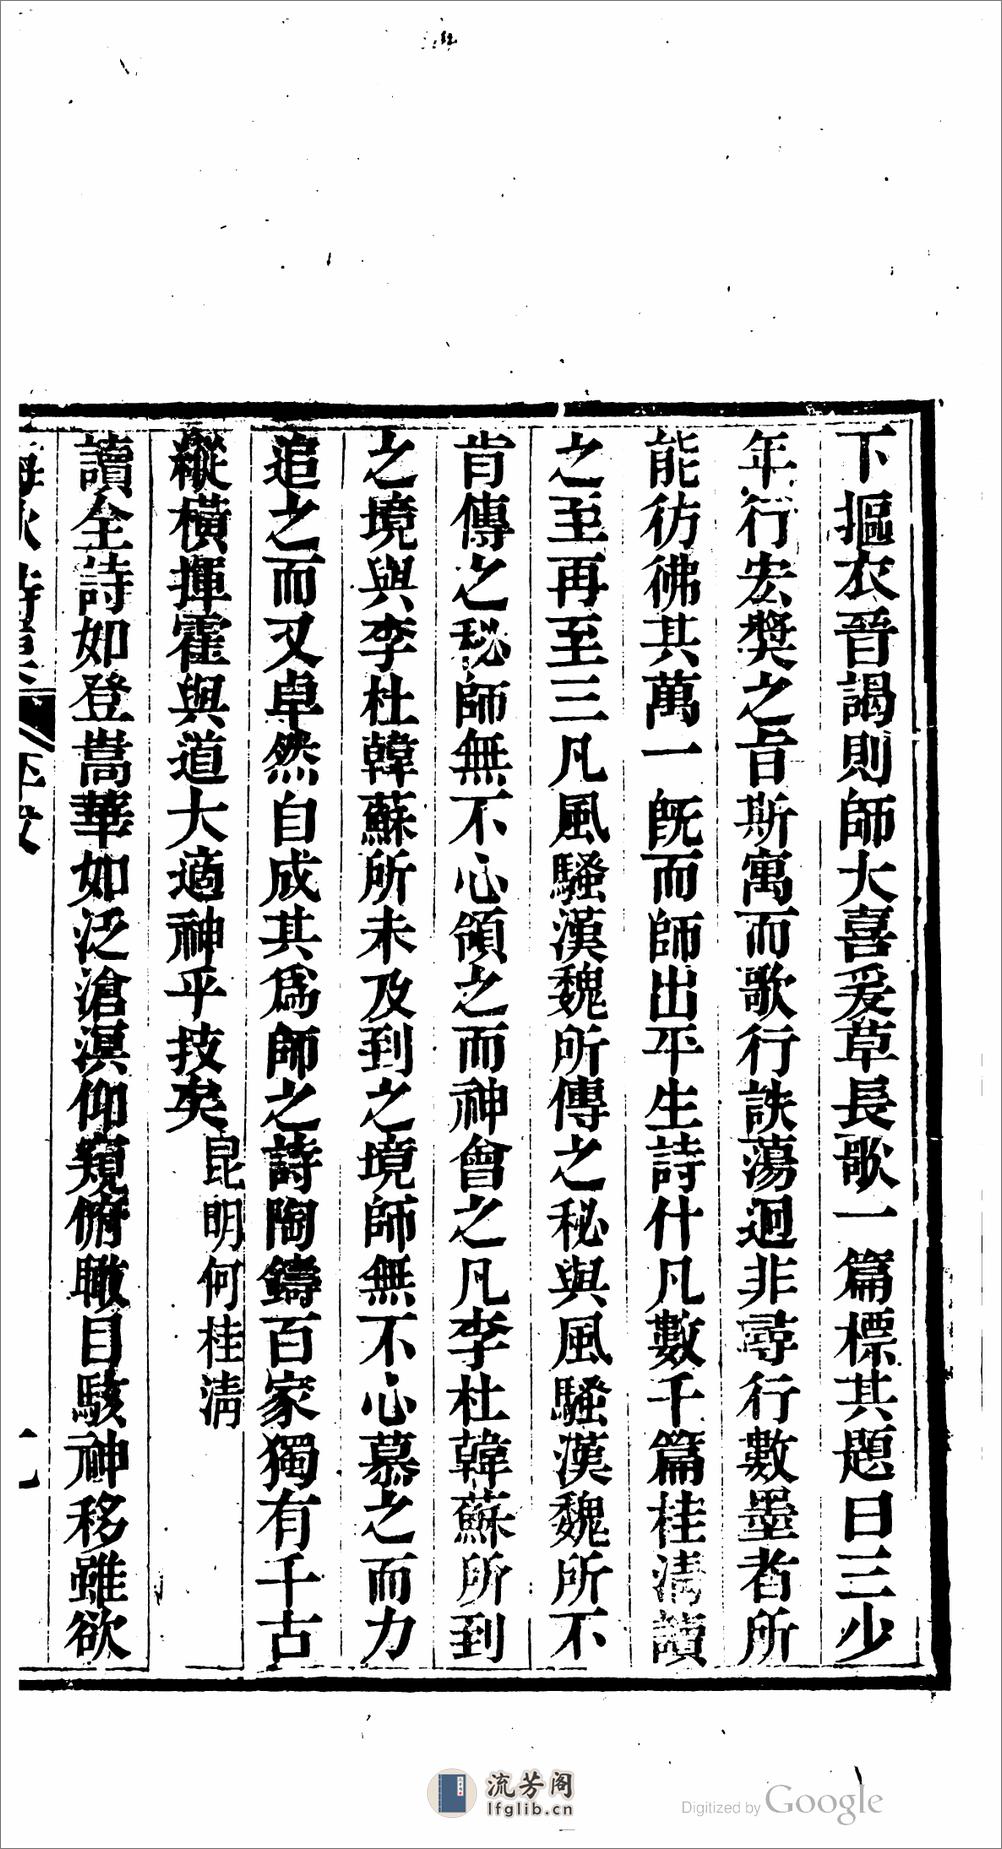 下摳衣晉謁則師大喜爰草長歌一篇標其題曰三少
年行宏奬之旨斯寓而歌行詄蕩迴非尋行數墨者所
能彷彿其萬一旣而師出平生詩什凡數千篇桂淸讀
之至再至三凡風騷漢魏所傳之秘與風騷漢魏所不
肯傳之秘師無不心領之而神會之凡李杜韓蘇所到
之境與李杜韓蘇所未及到之境師無不心慕之而力
追之而又卓然自成其爲師之詩陶鑄百家獨有千古
縱橫揮霍與道大適神乎技矣昆明何桂淸
讀全詩如登嵩華如泛滄溟仰窺俯瞰目駭神移雖欲
流芳阁
lfglib.cn
Digitized by Google